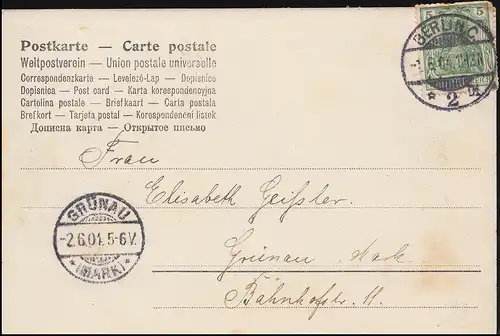 Postkarte — Carte postale
Weltpostverein — Union postale universelle
Correspondenzkarte — Levelező-Lap — Dopisnice
Dopisnica — Post card — Karta korespondencyjna
Cartolina postale — Briefkaart — Carta postala
Brefkort — Tarjeta postal — Korespondenční listek
Дописна карта — Открытое письмо
5 5
BERLIN C.
* 2
Frau
Elisabeth Geißler.
Grünau Mark
Bahnhofstr. 11.
GRÜNAU
-2.6.01. 5-6V.
* (MARK) *